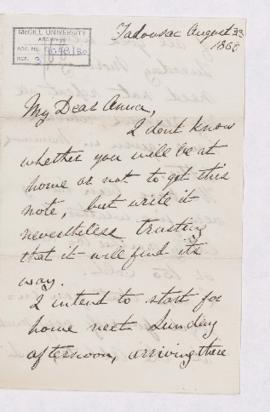 McGILL UNIVERSITY
ARCHIVES
ACC. NO.
REF.
Tadousac August 23
1868
My Dear Anna,
I dont know
whether you will be at
home or not to get this
note, but write it
nevertheless trusting
that it will find its
way.
I intend to start for
home next Sunday
afternoon, arriving there